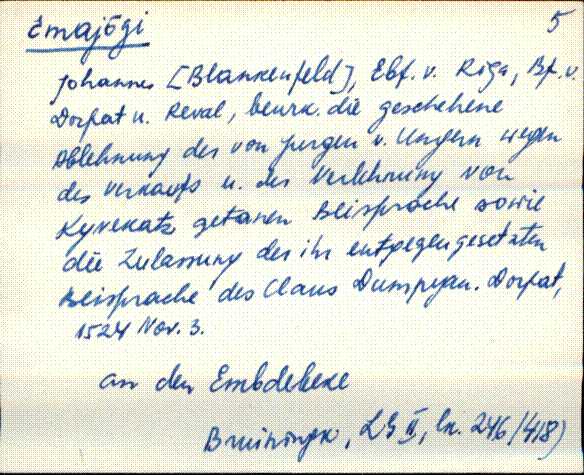 Ēmajõgi 5
Johannes [Blankenfeld], Ebf. v. Riga, Bf. v.
Dorpat u. Reval, beurk. die geschehene
Ablehnung der von Jurgen v. Ungern wegen
des Verkaufs u. der Verlehnung von
Kyrekatz getanen Beisprache sowie
die Zulassung der ihr entgegengesetzten
Beisprache des Claus Dumpyan. Dorpat,
1524 Nov. 3.
an den Embdebeke
Bruiningk, LG II, lk. 246 /418)